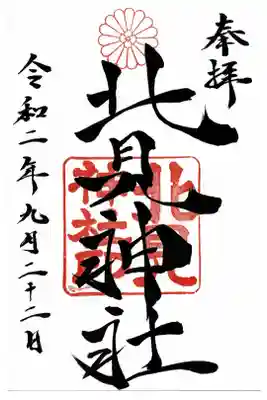 奉拝
北見神社
北見
神社
令和二年九月二十二日